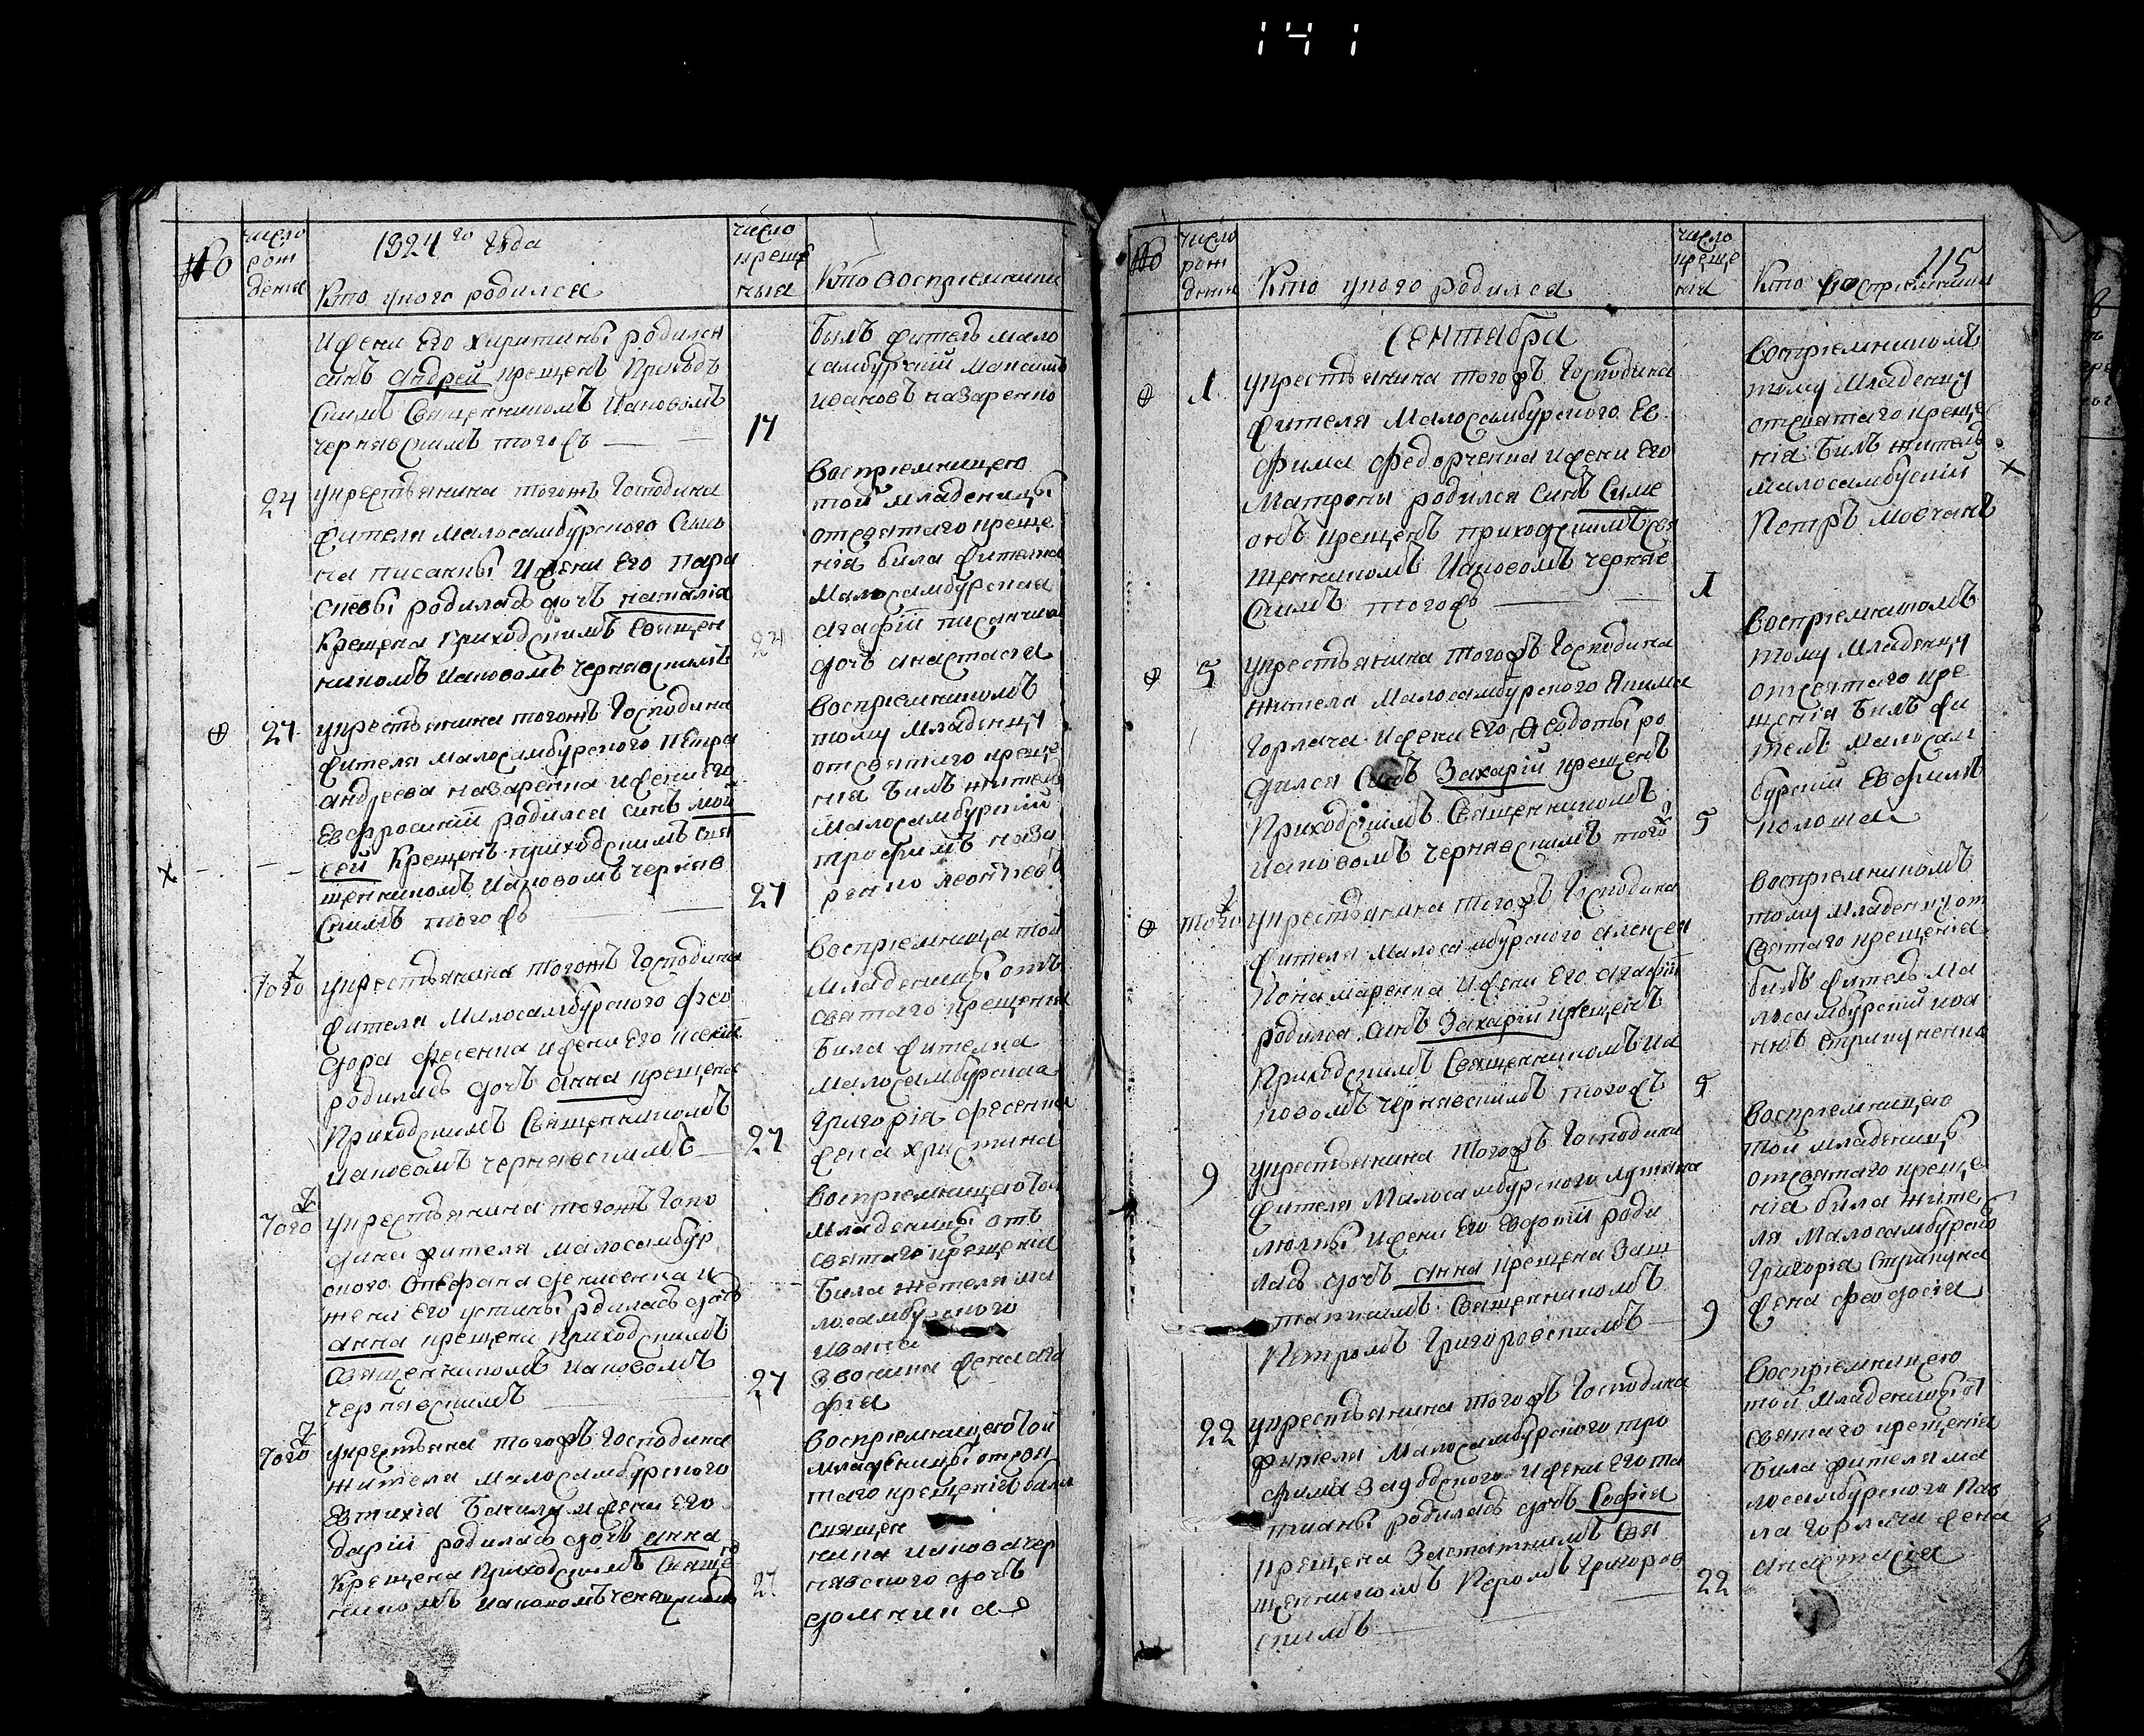 141
№
число
рож
дения
1824 го года
Кто у кого родился
число
креще
ния
Кто восприемники
и жени его Хиритины родился
синъ Андрей крещенъ приход
скимъ священникомъ Иаковомъ
Чернявскимъ того ж
17
Билъ жителъ мало
самбурский Максимъ
Ивановъ Назаренко
24
у крестьянина тогожъ господина
жителя малосамбурского Симо
на Писанки и жени его Пара
скевы родилась дочъ Наталия
Крещена приходскимъ священ
никомъ Иаковомъ Чернявскимъ
24
Восприемницею
той младеници
отсвятаго креще
ния била жителка
малосамбурская
дочъ Анастасия
⊕
27
у крестьянина тогожъ господина
жителя малосамбурского Петра
Андреева Назаренка и жени его
Евфросинии родился синъ Мой
сей Крещенъ приходскимъ свя
щенникомъ Иаковомъ Черняв
скимъ того ж
27
Восприемникомъ
тому младенцу
отсвятаго креще
ния билъ жител
малосамбурский
Трофимъ Наза
ренко
х
того ж
у крестьянина тогожъ господина
жителя малосамбурского Фео
дора Фесенка и жени его
родилась дочъ Анна крещена
приходскимъ священникомъ
Иаковомъ Чернявскимъ
27
Восприемница той
младеници отъ
святаго крещения
била жителка
малосамбурская
Григория Фесенка
жена Христина
того ж
у крестьянина тогожъ госпо
дина жителя малосамбур
ского Стефана Денисенка и
жени его Устины рдилась дочъ
Анна крещена приходскимъ
священникомъ Иаковомъ
Чернявскимъ
27
Восприемницею той
младеници отъ
святаго крещения
била жителя ма
лосамбурского
Ивана
жена Ага
фия
того ж
у крестянина тогожъ господина
жителя малосамбурского
Евтихия и жени его
Дарии родилась дочъ Анна
Крещена приходскимъ свяще
никомъ Иаковомъ
27
Восприемницею той
младеници отсвя
таго крещения била
священ
ника Иакова Чер
нявского дочъ
Домникия
№
число
рож
дения
Кто у кого родился
число
креще
ния
115
Кто восприемники
Сентабра
⊕
1
у крестьянина тогожъ господина
жителя малосамбурского Ев
фима Федорченка и жени его
Матрони родился синъ Симе
онъ крещенъ приходскимъ свя
щенникомъ Иаковомъ Черняв
скимъ того ж
1
Восприемникомъ
тому младенцу
отсвятаго креще
ния билъ жителъ
малосамбуский
Петръ Мовчанъ
х
⊕
5
у крестьянина тогожъ господина
жителя малосамбурского Якима
Горлача и жени его Феодоты ро
дился синъ Захарий крещенъ
приходскимъ священникомъ
Иаковомъ Чернявскимъ того ж
5
Восприемникомъ
тому младенцу
отсвятаго кре
щения билъ жи
телъ малосам
бурский Евфимъ
того ж
⊕
у крестьянина тогожъ господина
жителя малосамбурского Алексея
Понамаренка и жени его Агафии
родился синъ Захарий крещенъ
приходскимъ священникомъ Иа
ковомъ Чернявскимъ того ж
5
Восприемникомъ
тому младенцу от
святаго крещения
билъ жителъ ма
лосамбурский Иоа
ннъ
9
у крестьянина тогожъ господина
жителя малосамбурского Лукяна
и жени его Евдокии роди
лась дочъ Анна крещена заш
татнимъ священникомъ
Петромъ Григоровскимъ
9
Восприемницею
той младеници
отсвятаго креще
ния била жите
ля малосамбурско
Григория
жена Феодосия
22
у крестьянина тогожъ господина
жителя малосамбурского Тро
фима и жени его Та
тианы родилась дочъ София
крещена заштатнимъ свя
щенникомъ Перомъ Григоров
скимъ
22
Восприемницею
той младеници от
святаго крещения
била жителя ма
лосамбурского Пав
ла Горлача жена
Анастасия